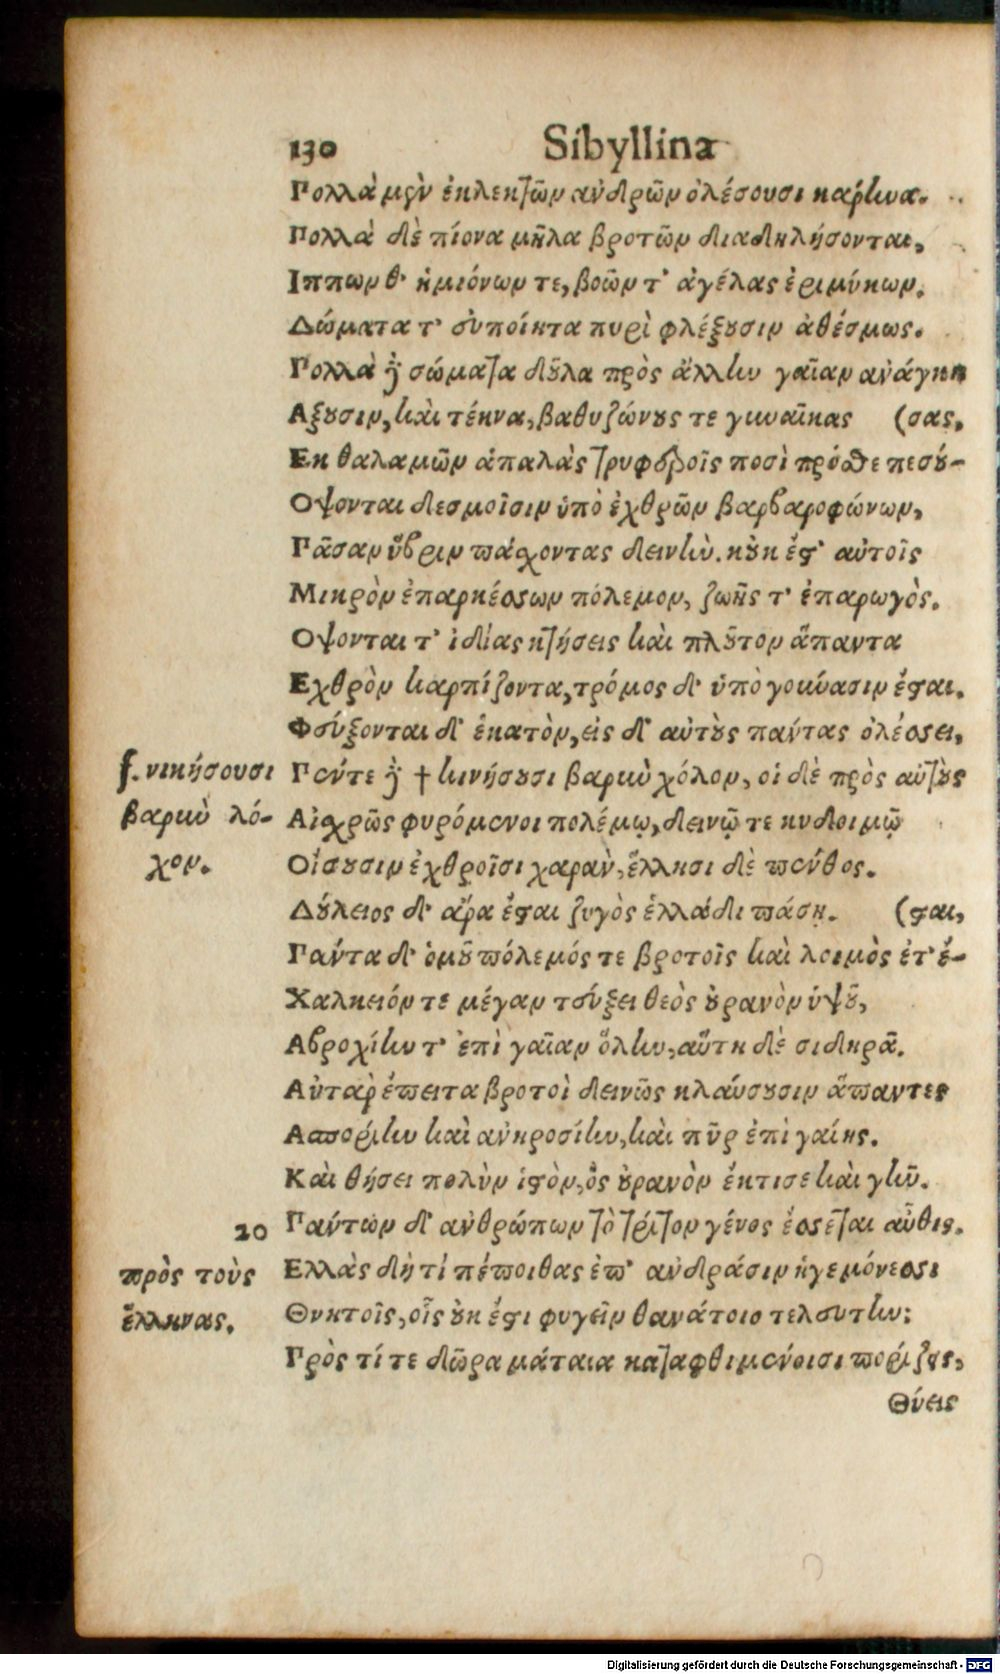 130 Sibyllina
Πολλὰ μὲν ἐκλεκτῶν ἀνδρῶν ὀλέσουσι κάρηνα.
Πολλὰ δὲ πίονα μῆλα βροτῶν διαδηλήσονται,
Ιππων θ' ἡμιόνων τε, βοῶν τ' ἀγέλας ἐριμύκων.
Δώματα τ' εὐποίητα πυρὶ φλέξουσιν ἀθέσμως.
Πολλὰ δὲ σώματα δοῦλα πρὸς ἄλλην γαῖαν ἀνάγκη
Αξουσιν, καὶ τέκνα, βαθυζώνους τε γυναῖκας (σας,
Εκ θαλαμῶν ἁπαλὰς τρυφεροῖς ποσὶ πρόσθε πεσού-
Οψονται δεσμοῖσιν ὑπὸ ἐχθρῶν βαρβαροφώνων,
Πᾶσαν ὕβριν πάσχοντας δεινήν. κοὐκ ἔστ' αὐτοῖς
Μικρὸν ἐπαρκέσσων πόλεμον, ζωῆς τ' ἐπαρωγὸς.
Οψονται τ' ἰδίας κτήσεις καὶ πλοῦτον ἅπαντα
Εχθρὸν καρπίζοντα, τρόμος δ' ὑπὸ γούνασιν ἔσται.
Φεύξονται δ' ἑκατὸν, εἷς δ' αὐτοὺς πάντας ὀλέσσει,
f. νικήσουσι Πέντε δὲ † κινήσουσι βαρὺν χόλον, οἱ δὲ πρὸς αὐτοὺς
βαρὺν λό- Αἰσχρῶς φυρόμενοι πολέμῳ, δεινῷ τε κυδοιμῷ
χον. Οἴσουσιν ἐχθροῖσι χαρὰν, ἕλλησι δὲ πένθος.
Δούλειος δ' ἄρα ἔσται ζυγὸς ἑλλάδι πάσῃ. (σται,
Πάντα δ' ὁμοῦ πόλεμός τε βροτοῖς καὶ λοιμὸς ἐτ' ἔ-
Χαλκειόν τε μέγαν τεύξει θεὸς οὐρανὸν ὑψοῦ,
Αβροχίην τ' ἐπὶ γαῖαν ὅλην, αὕτη δὲ σιδηρᾶ.
Αὐτὰρ ἔπειτα βροτοὶ δεινῶς κλαύσουσιν ἅπαντες
Ασπορίην καὶ ἀνηροσίην, καὶ πῦρ ἐπὶ γαίης.
Καὶ θήσει πολὺν ἱστὸν, ὃς οὐρανὸν ἔκτισε καὶ γῆν.
20 Πάντων δ' ἀνθρώπων τὸ τρίτον γένος ἔσσεται αὖθις.
πρὸς τοὺς Ελλὰς δὴ τί πέποιθας ἐπ' ἀνδράσιν ἡγεμόνεσσι
ἕλληνας. Θνητοῖς, οἷς οὐκ ἔστι φυγεῖν θανάτοιο τελευτήν;
Πρὸς τί τε δῶρα μάταια καταφθιμένοισι πορίζεις,
Θύεις
Digitalisierung gefördert durch die Deutsche Forschungsgemeinschaft - DFG